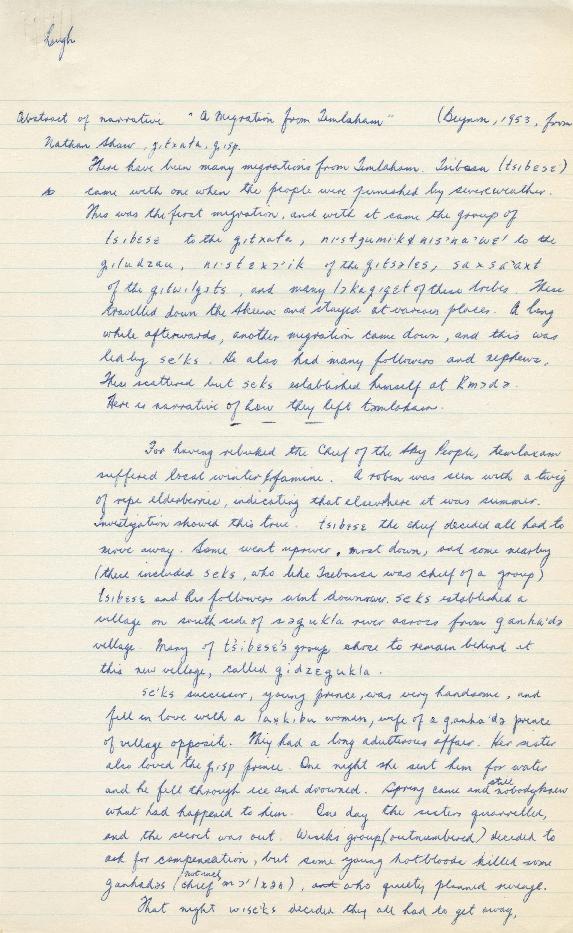 Abstract of narrative "A Migration from Temlaham" (Beynon, 1953, from
Nathan Shaw, gitxata, gisp.
There have been many migrations from Temlaham. Tsibasa (tsibɛsɛ)
came with one when the people were punished by severe weather.
This was the first migration, and with it came the group of
tsibɛsɛ to the gitxata, to the
giludzau, of the gitsalɛs,
of the and many of these tribes. These
travelled down the Skeena and stayed at various places. A long
while afterwards, another migration came down, and this was
led by se'ks. He also had many followers and nephews.
These scattered but seks established himself at
Here is narrative of how they left temlaham.
For having rebuked the Chief of the Sky People, temlaxam
suffered local winter & famine. A robin was seen with a twig
of ripe elderberries, indicating that elsewhere it was summer.
Investigation showed this true. tsibɛsɛ the chief decided all had to
move away. Some went upriver, most down, and some nearby
(these included seks, who like Tsebassa was chief of a group)
tsibɛsɛ and his followers went downriver. seks established a
village on south side of river across from ganha'də
village. Many of tsibɛsɛ's group chose to remain behind at
this new village, called gidzɛgukla.
se'ks successor, young prince, was very handsome, and
fell in love with a laxkibu woman, wife of a ganha'də prince
of village opposite. They had a long adulterous affair. Her sister
also loved the gisp prince. One night she sent him for water
and he fell through ice and drowned. Spring came and still nobody knew
what had happened to him. One day the sisters quarrelled,
and the secret was out. Wiseks group (outnumbered) decided to
ask for compensation, but some young hotbloods killed some
ganhadəs (not incl. chief), who quietly planned revenge.
That night wise'ks decided they all had to get away,